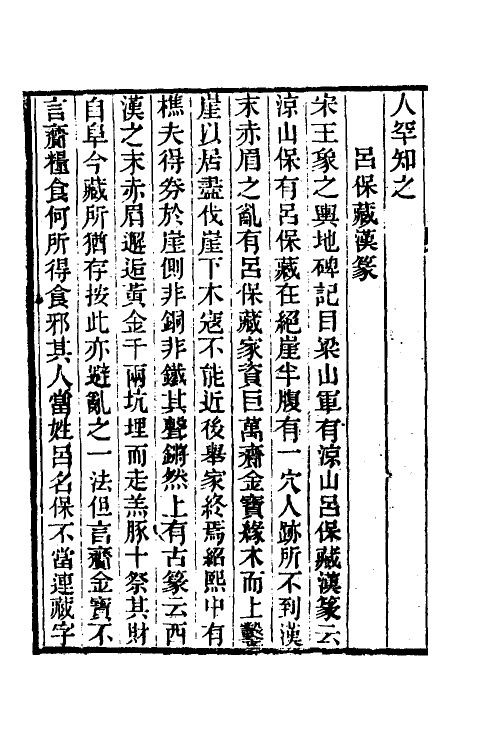 人罕知之
呂保藏漢篆
宋王象之輿地碑記目梁山軍有涼山呂保藏漢篆云
涼山保有呂保藏在絕崖半腹有一穴人跡所不到漢
末赤眉之亂有呂保藏家資巨萬齎金寶緣木而上鑿
崖以居盡伐崖下木寇不能近後舉家終焉紹熙中有
樵夫得券於崖側非銅非鐵其聲鏘然上有古篆云西
漢之末赤眉邂逅黃金千兩坑埋而走羔豚十祭其財
自阜今藏所猶存按此亦避亂之一法但言齎金寶不
言齎糧食何所得食邪其人當姓呂名保不當連藏字